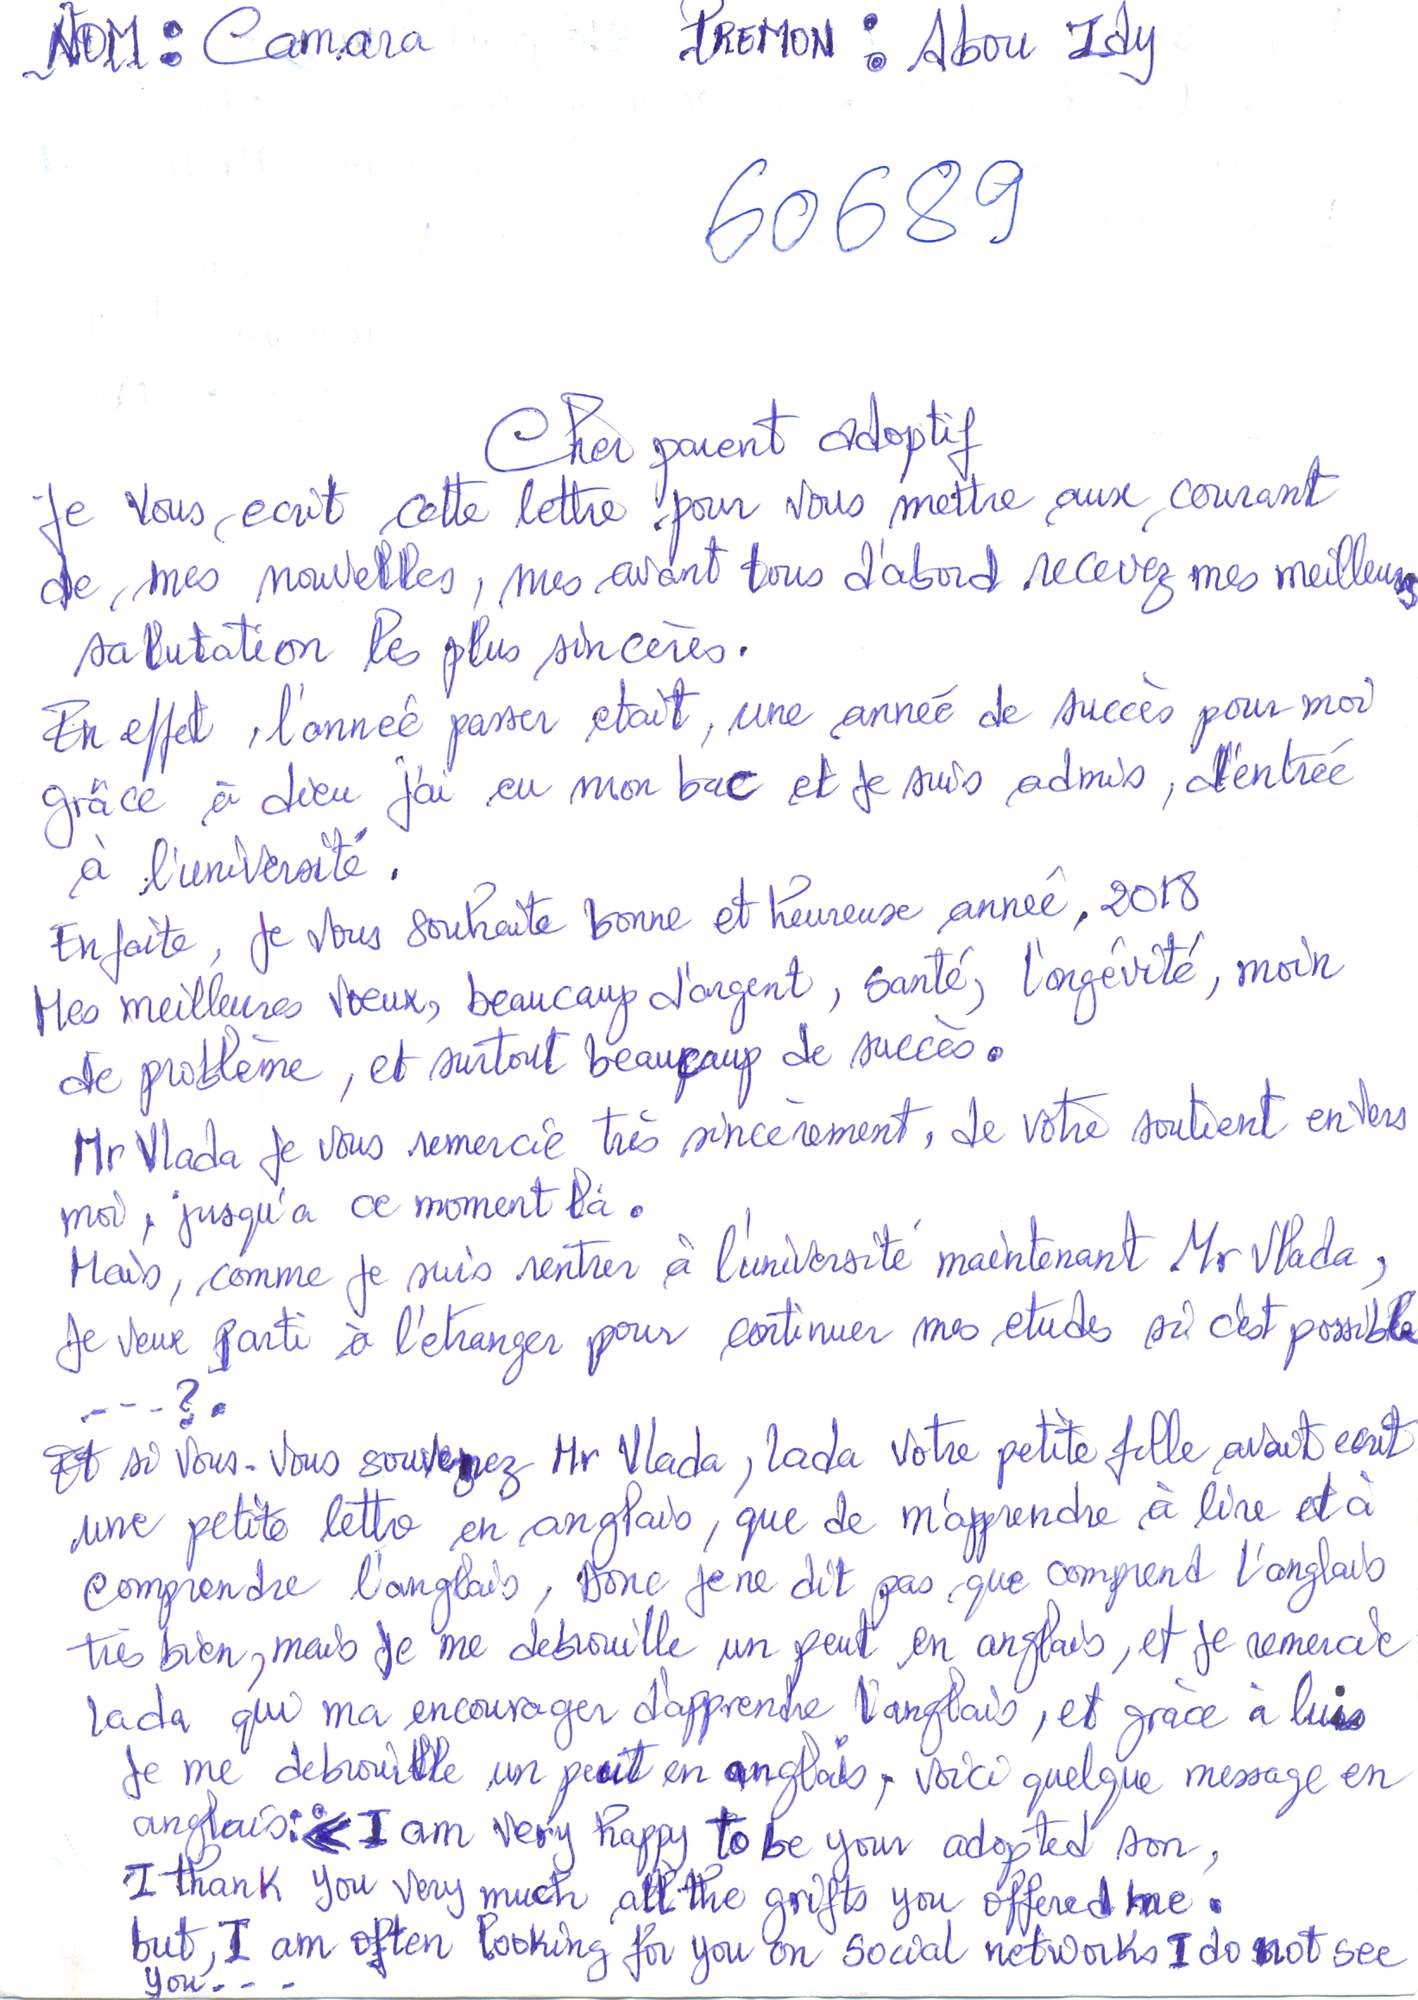 NOM : Camara PREMON : Abou Idy
60689
Cher parent adoptif
Je vous ecrit cette lettre pour vous mettre aux courant
de mes nouvelles, mes avant tous d'abord recevez mes meilleurs
salutation les plus sincères.
En effet, l'anneé passer etait, une anneé de succès pour moi
grâce à dieu j'ai eu mon bac et je suis admis, d'entreé
à l'université.
En faite, je vous souhaite bonne et heureuse anneé, 2018
Mes meilleures voeux, beaucaup d'argent, santé, l'ongévité, moin
de problème, et surtout beaucaup de succès.
Mr Vlada je vous remercie très sincèrement, de votre soutient envers
moi, jusqu'a ce moment là.
Mais, comme je suis rentrer à l'université maintenant Mr Vlada,
je veux parti à l'etranger pour continuer mes etudes si c'est possible
---?.
Et si vous-vous souvenez Mr Vlada, lada votre petite fille avait ecrit
une petite lettre en anglais, que de m'apprendre à lire et à
comprendre l'anglais, Donc je ne dit pas que comprend l'anglais
très bien, mais je me debrouille un peut en anglais, et je remercie
lada qui ma encourager d'apprendre l'anglais, et grâce à luis
je me debrouille un peut en anglais, voici quelque message en
anglais: « I am very happy to be your adopted son,
I thank you very much all the grifts you offered me.
but, I am often looking for you on social networks I do not see
you---